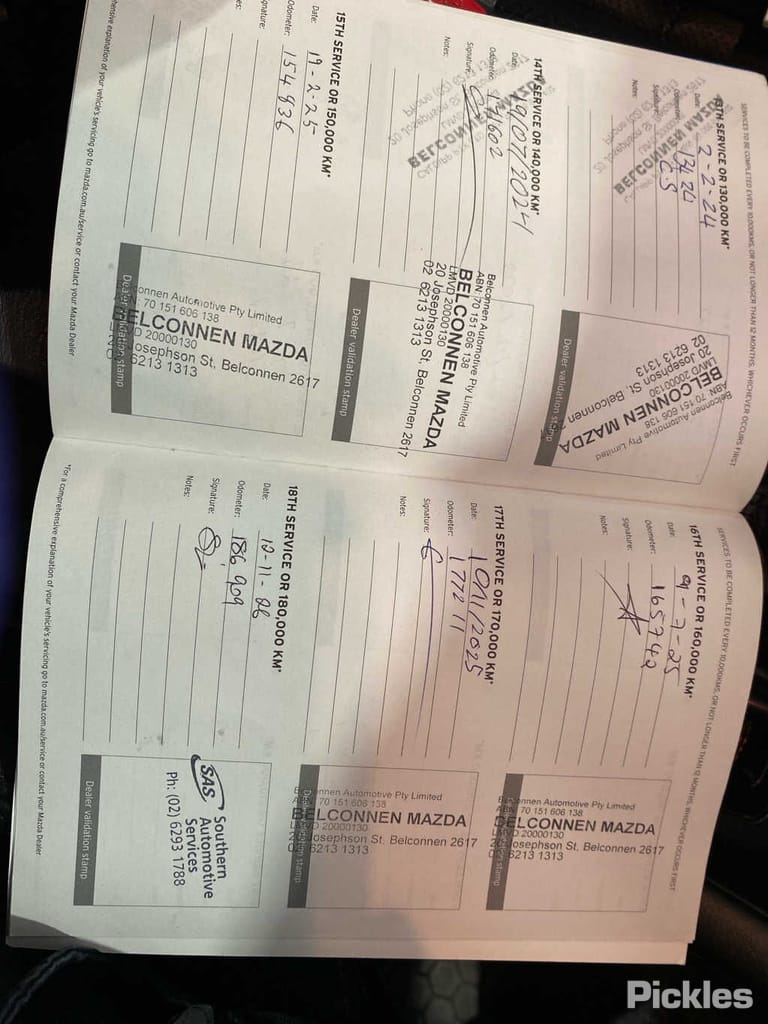 SERVICES TO BE COMPLETED EVERY 10,000KMS, OR NOT LONGER THAN 12 MONTHS, WHICHEVER OCCURS FIRST
13TH SERVICE OR 130,000 KM*
Date: 2-2-24
Odometer:
Signature: C.S
Notes:
BELCONNEN MAZDA
Belconnen Automotive Pty Limited
ABN 70 151 606 138
BELCONNEN MAZDA
LMVD 20000130
20 Josephson St, Belconnen
02 6213 1313
Dealer validation stamp
14TH SERVICE OR 140,000 KM*
Date: 19/07/2024
Odometer: 141602
Signature:
Notes:
BELCONNEN MAZDA
Belconnen Automotive Pty Limited
ABN 70 151 606 138
BELCONNEN MAZDA
LMVD 20000130
20 Josephson St, Belconnen 2617
02 6213 1313
Dealer validation stamp
15TH SERVICE OR 150,000 KM*
Date: 19-2-25
Odometer: 154836
Signature:
Notes:
Belconnen Automotive Pty Limited
ABN 70 151 606 138
BELCONNEN MAZDA
LMVD 20000130
20 Josephson St, Belconnen 2617
02 6213 1313
Dealer validation stamp
explanation of your vehicle's servicing go to mazda.com.au/service or contact your Mazda Dealer
SERVICES TO BE COMPLETED EVERY 10,000KMS, OR NOT LONGER THAN 12 MONTHS, WHICHEVER OCCURS FIRST
16TH SERVICE OR 160,000 KM*
Date: 9-7-25
Odometer: 165742
Signature:
Notes:
Belconnen Automotive Pty Limited
ABN 70 151 606 138
BELCONNEN MAZDA
LMVD 20000130
20 Josephson St, Belconnen 2617
02 6213 1313
Dealer validation stamp
17TH SERVICE OR 170,000 KM*
Date:
Odometer: 177211
Signature:
Notes:
Belconnen Automotive Pty Limited
ABN 70 151 606 138
BELCONNEN MAZDA
LMVD 20000130
20 Josephson St, Belconnen 2617
02 6213 1313
Dealer validation stamp
18TH SERVICE OR 180,000 KM*
Date:
Odometer: 186,909
Signature:
Notes:
SAS Southern
Automotive
Services
Ph: (02) 6293 1788
Dealer validation stamp
*For a comprehensive explanation of your vehicle's servicing go to mazda.com.au/service or contact your Mazda Dealer
Pickles